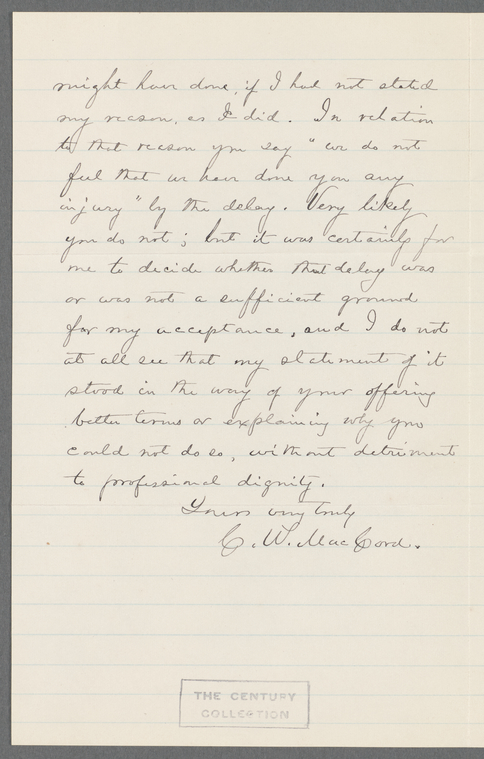 might have done, if I had not stated
my reason, as I did. In relation
to that reason you say "we do not
feel that we have done you any
injury" by the delay. Very likely
you do not; but it was certainly for
me to decide whether that delay was
or was not a sufficient ground
for my acceptance, and I do not
at all see that my statement of it
stood in the way of your offering
better terms or explaining why you
could not do so, without detriment
to professional dignity.
Yours very truly
C. W. MacCord.
THE CENTURY
COLLECTION